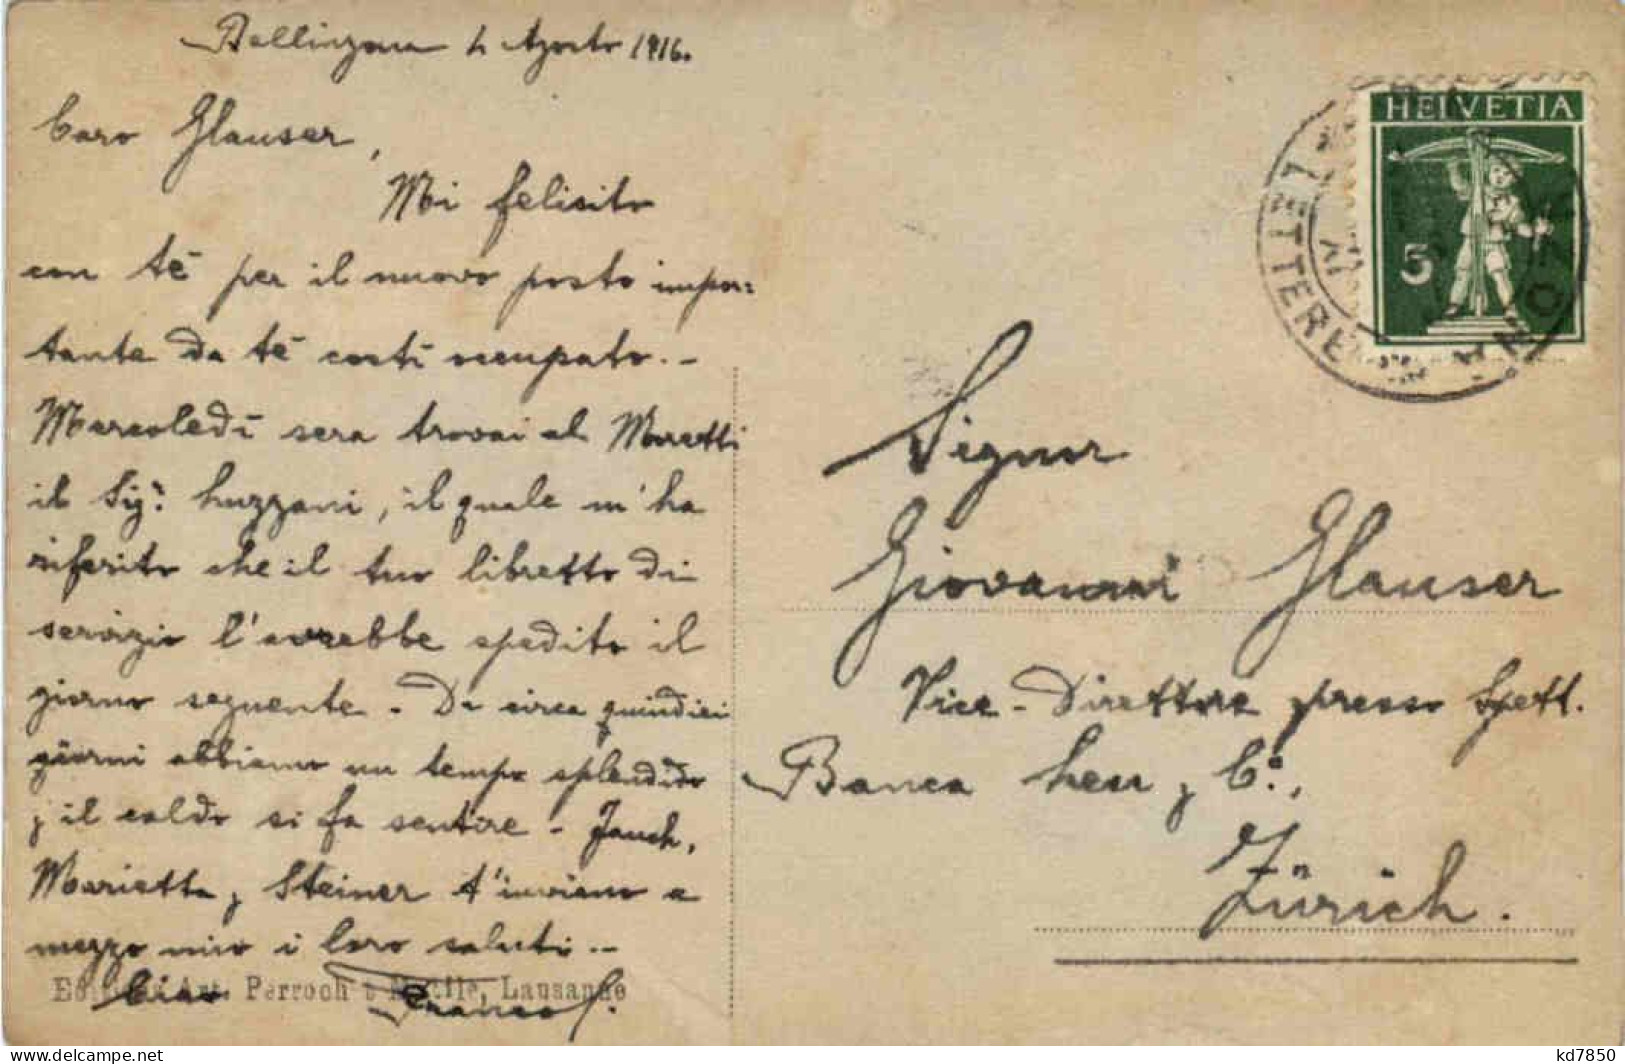 Bellinzona 4 Agosto 1916.
Caro Glauser,
Mi felicito
con tè per il nuovo posto impor-
tante da tè costì occupato. -
Mercoledì sera trovai al Moretti
il Sigr. Luzzani, il quale m'ha
riferito che il tuo libretto di
servizio l'avrebbe spedito il
giorno seguente. - Da circa quindici
giorni abbiamo un tempo splendido
, il caldo si fa sentire - Jauch,
Marietta, Steiner t'inviano a
mezzo mio i loro saluti. -
Ciao Franco
Art. Perroch Lausanne
HELVETIA
5
LETTERE
Signor
Giovanni Glauser
Vice-Direttore presso Spett.
Banca Leu, Co.,
Zürich.
kd7850